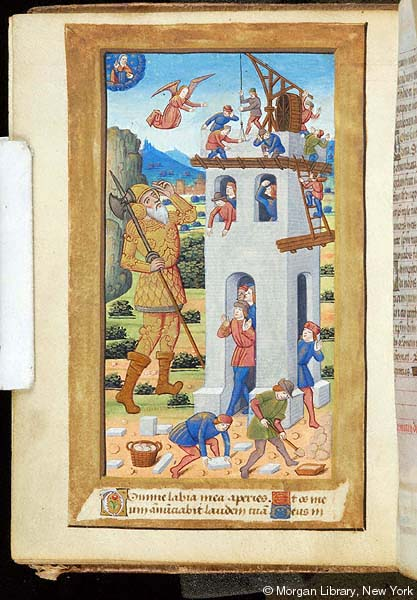 Domine labia mea aperies. Et os me
um annunciabit laudem tuã. Deus in
© Morgan Library, New York